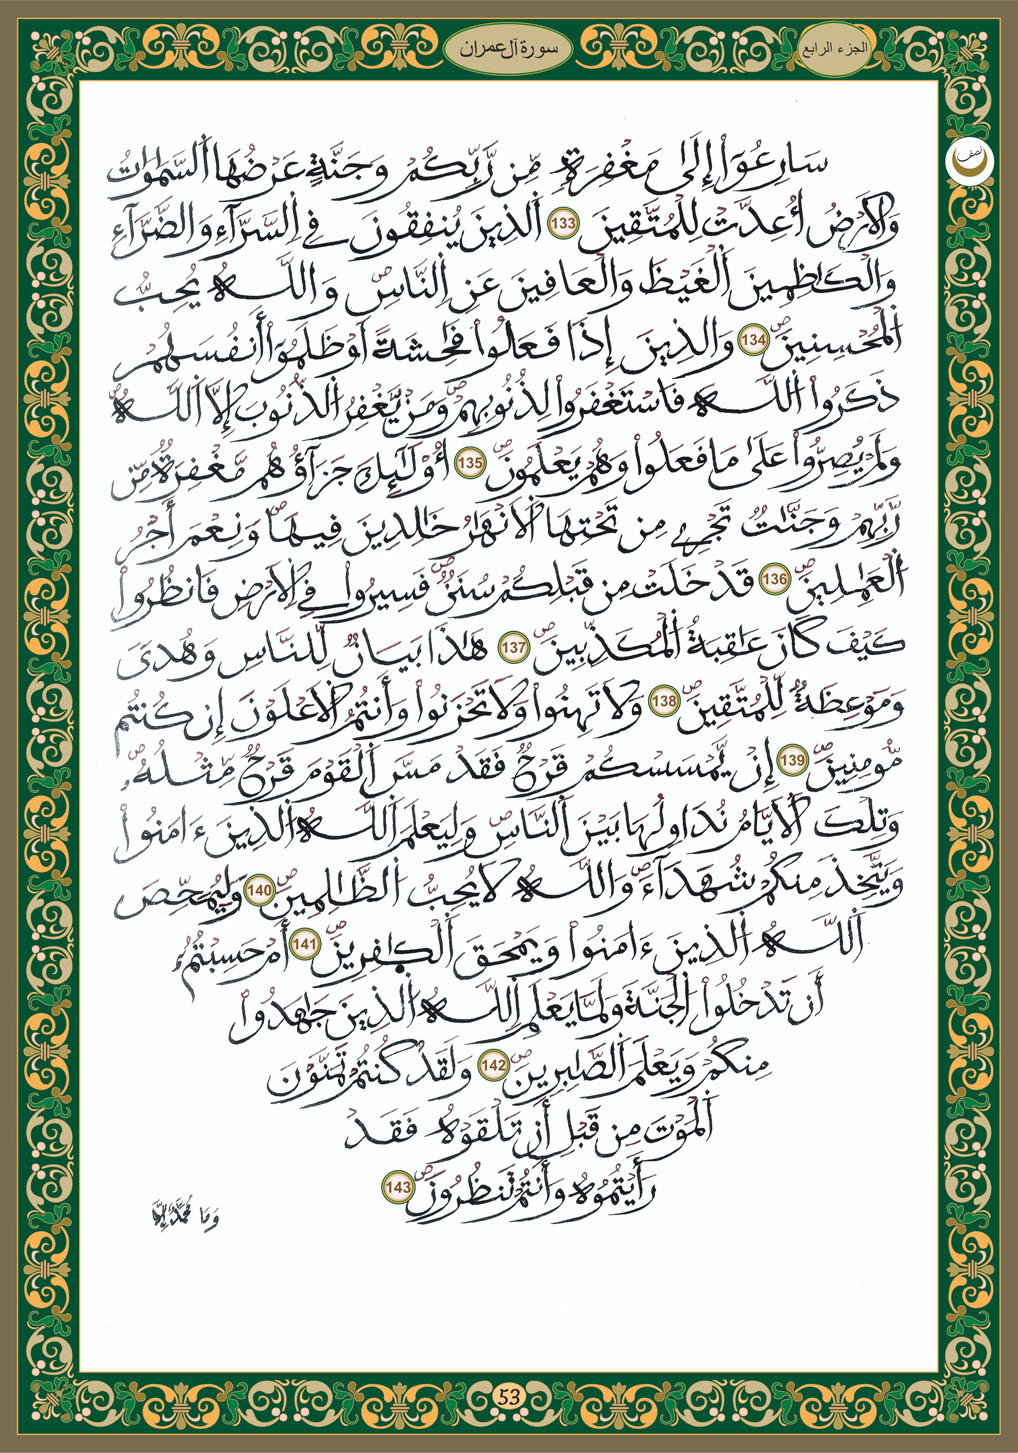 الجزء الرابع
سورة آل عمران
نصف
سَارِعُوٓا۟ إِلَىٰ مَغْفِرَةٍ مِّن رَّبِّكُمْ وَجَنَّةٍ عَرْضُهَا اَ۬لسَّمَٰوَٰتُ
وَالَارْضُ أُعِدَّتْ لِلْمُتَّقِينَ 133 اَ۬لذِينَ يُنفِقُونَ فِے اِ۬لسَّرَّآءِ وَالضَّرَّآءِ
وَالْكَٰظِمِينَ اَ۬لْغَيْظَ وَالْعَافِينَ عَنِ اِ۬لنَّاسِۖ وَاللَّهُ يُحِبُّ
اُ۬لْمُحْسِنِينَۖ 134 وَالذِينَ إِذَا فَعَلُوا۟ فَٰحِشَةً اَوْ ظَلَمُوٓا۟ أَنفُسَهُمْ
ذَكَرُوا۟ اُ۬للَّهَ فَاسْتَغْفَرُوا۟ لِذُنُوبِهِمْۖ وَمَنْ يَّغْفِرُ اُ۬لذُّنُوبَ إِلَّا اَ۬للَّهُۖ
وَلَمْ يُصِرُّوا۟ عَلَىٰ مَا فَعَلُوا۟ وَهُمْ يَعْلَمُونَۖ 135 أُو۟لَٰٓئِكَ جَزَآؤُهُم مَّغْفِرَةٌ مِّن
رَّبِّهِمْ وَجَنَّٰتٌ تَجْرِے مِن تَحْتِهَا اَ۬لَانْهَٰرُ خَٰلِدِينَ فِيهَاۖ وَنِعْمَ أَجْرُ
اُ۬لْعَٰمِلِينَۖ 136 قَدْ خَلَتْ مِن قَبْلِكُمْ سُنَنٌۖ فَسِيرُوا۟ فِے اِ۬لَارْضِ فَانظُرُوا۟
كَيْفَ كَانَ عَٰقِبَةُ اُ۬لْمُكَذِّبِينَۖ 137 هَٰذَا بَيَانٌ لِّلنَّاسِ وَهُدًى
وَمَوْعِظَةٌ لِّلْمُتَّقِينَۖ 138 وَلَا تَهِنُوا۟ وَلَا تَحْزَنُوا۟ وَأَنتُمُ اُ۬لَاعْلَوْنَ إِن كُنتُم
مُّومِنِينَۖ 139 إِنْ يَّمْسَسْكُمْ قَرْحٌ فَقَدْ مَسَّ اَ۬لْقَوْمَ قَرْحٌ مِّثْلُهُۥۖ
وَتِلْكَ اَ۬لَايَّامُ نُدَاوِلُهَا بَيْنَ اَ۬لنَّاسِۖ وَلِيَعْلَمَ اَ۬للَّهُ اُ۬لذِينَ ءَامَنُوا۟
وَيَتَّخِذَ مِنكُمْ شُهَدَآءَۖ وَاللَّهُ لَا يُحِبُّ اُ۬لظَّٰلِمِينَۖ 140 وَلِيُمَحِّصَ
اَ۬للَّهُ اُ۬لذِينَ ءَامَنُوا۟ وَيَمْحَقَ اَ۬لْكَٰفِرِينَۖ 141 أَمْ حَسِبْتُمُۥٓ
أَن تَدْخُلُوا۟ اُ۬لْجَنَّةَ وَلَمَّا يَعْلَمِ اِ۬للَّهُ اُ۬لذِينَ جَٰهَدُوا۟
مِنكُمْ وَيَعْلَمَ اَ۬لصَّٰبِرِينَۖ 142 وَلَقَدْ كُنتُمْ تَمَنَّوْنَ
اَ۬لْمَوْتَ مِن قَبْلِ أَن تَلْقَوْهُ فَقَدْ
رَأَيْتُمُوهُ وَأَنتُمْ تَنظُرُونَۖ 143
وَمَا مُحَمَّدٌ اِلَّا
53